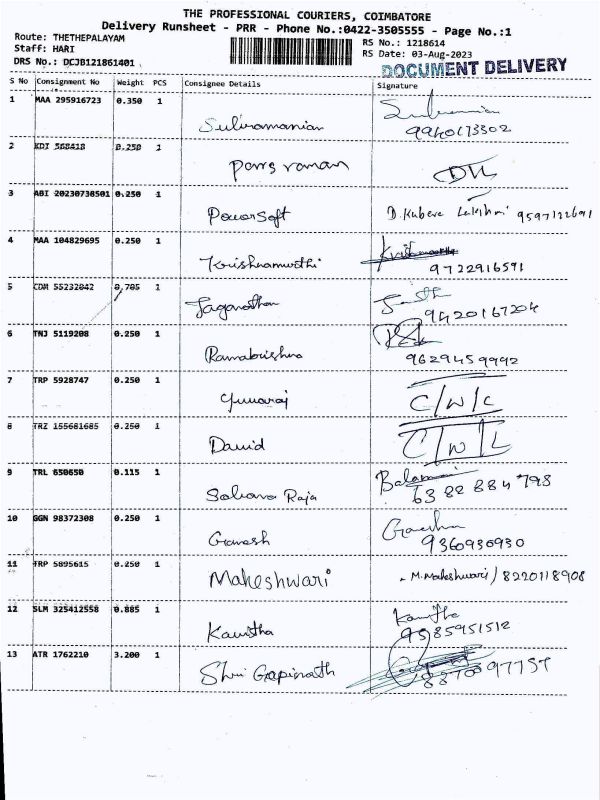 THE PROFESSIONAL COURIERS, COIMBATORE
Delivery Runsheet - PRR - Phone No.:0422-3505555 - Page No.:1
Route: THETHEPALAYAM
RS No.: 1218614
Staff: HARI
RS Date: 03-Aug-2023
DRS No.: DCJB121861401
DOCUMENT DELIVERY
S No Consignment No Weight PCS Consignee Details Signature
1 MAA 295916723 0.350 1
Subramanian 9940173302
2 KDI 568418 0.250 1
raman
3 ABI 20230738501 0.250 1
PowerSoft D. Kubera Lakshmi 9597122691
4 MAA 104829695 0.250 1
Krishnamurthi 9722916591
5 CDM 55232042 0.705 1
Jaganathan 9420167204
6 TNJ 5119208 0.250 1
Ramakrishna 9629459992
7 TRP 5928747 0.250 1
Yuvaraj C/W/C
8 TRZ 155681685 0.250 1
David C/W/L
9 TRL 650650 0.115 1
Sahana Raja 6382884798
10 GGN 98372308 0.250 1
Ganesh Ganesha 9360930930
11 TRP 5895615 0.250 1
Maheshwari M. Maheshwari / 8220118908
12 SLM 325412558 0.885 1
Kavitha Kavitha 9585951512
13 ATR 1762210 3.200 1
Shri Gopinath